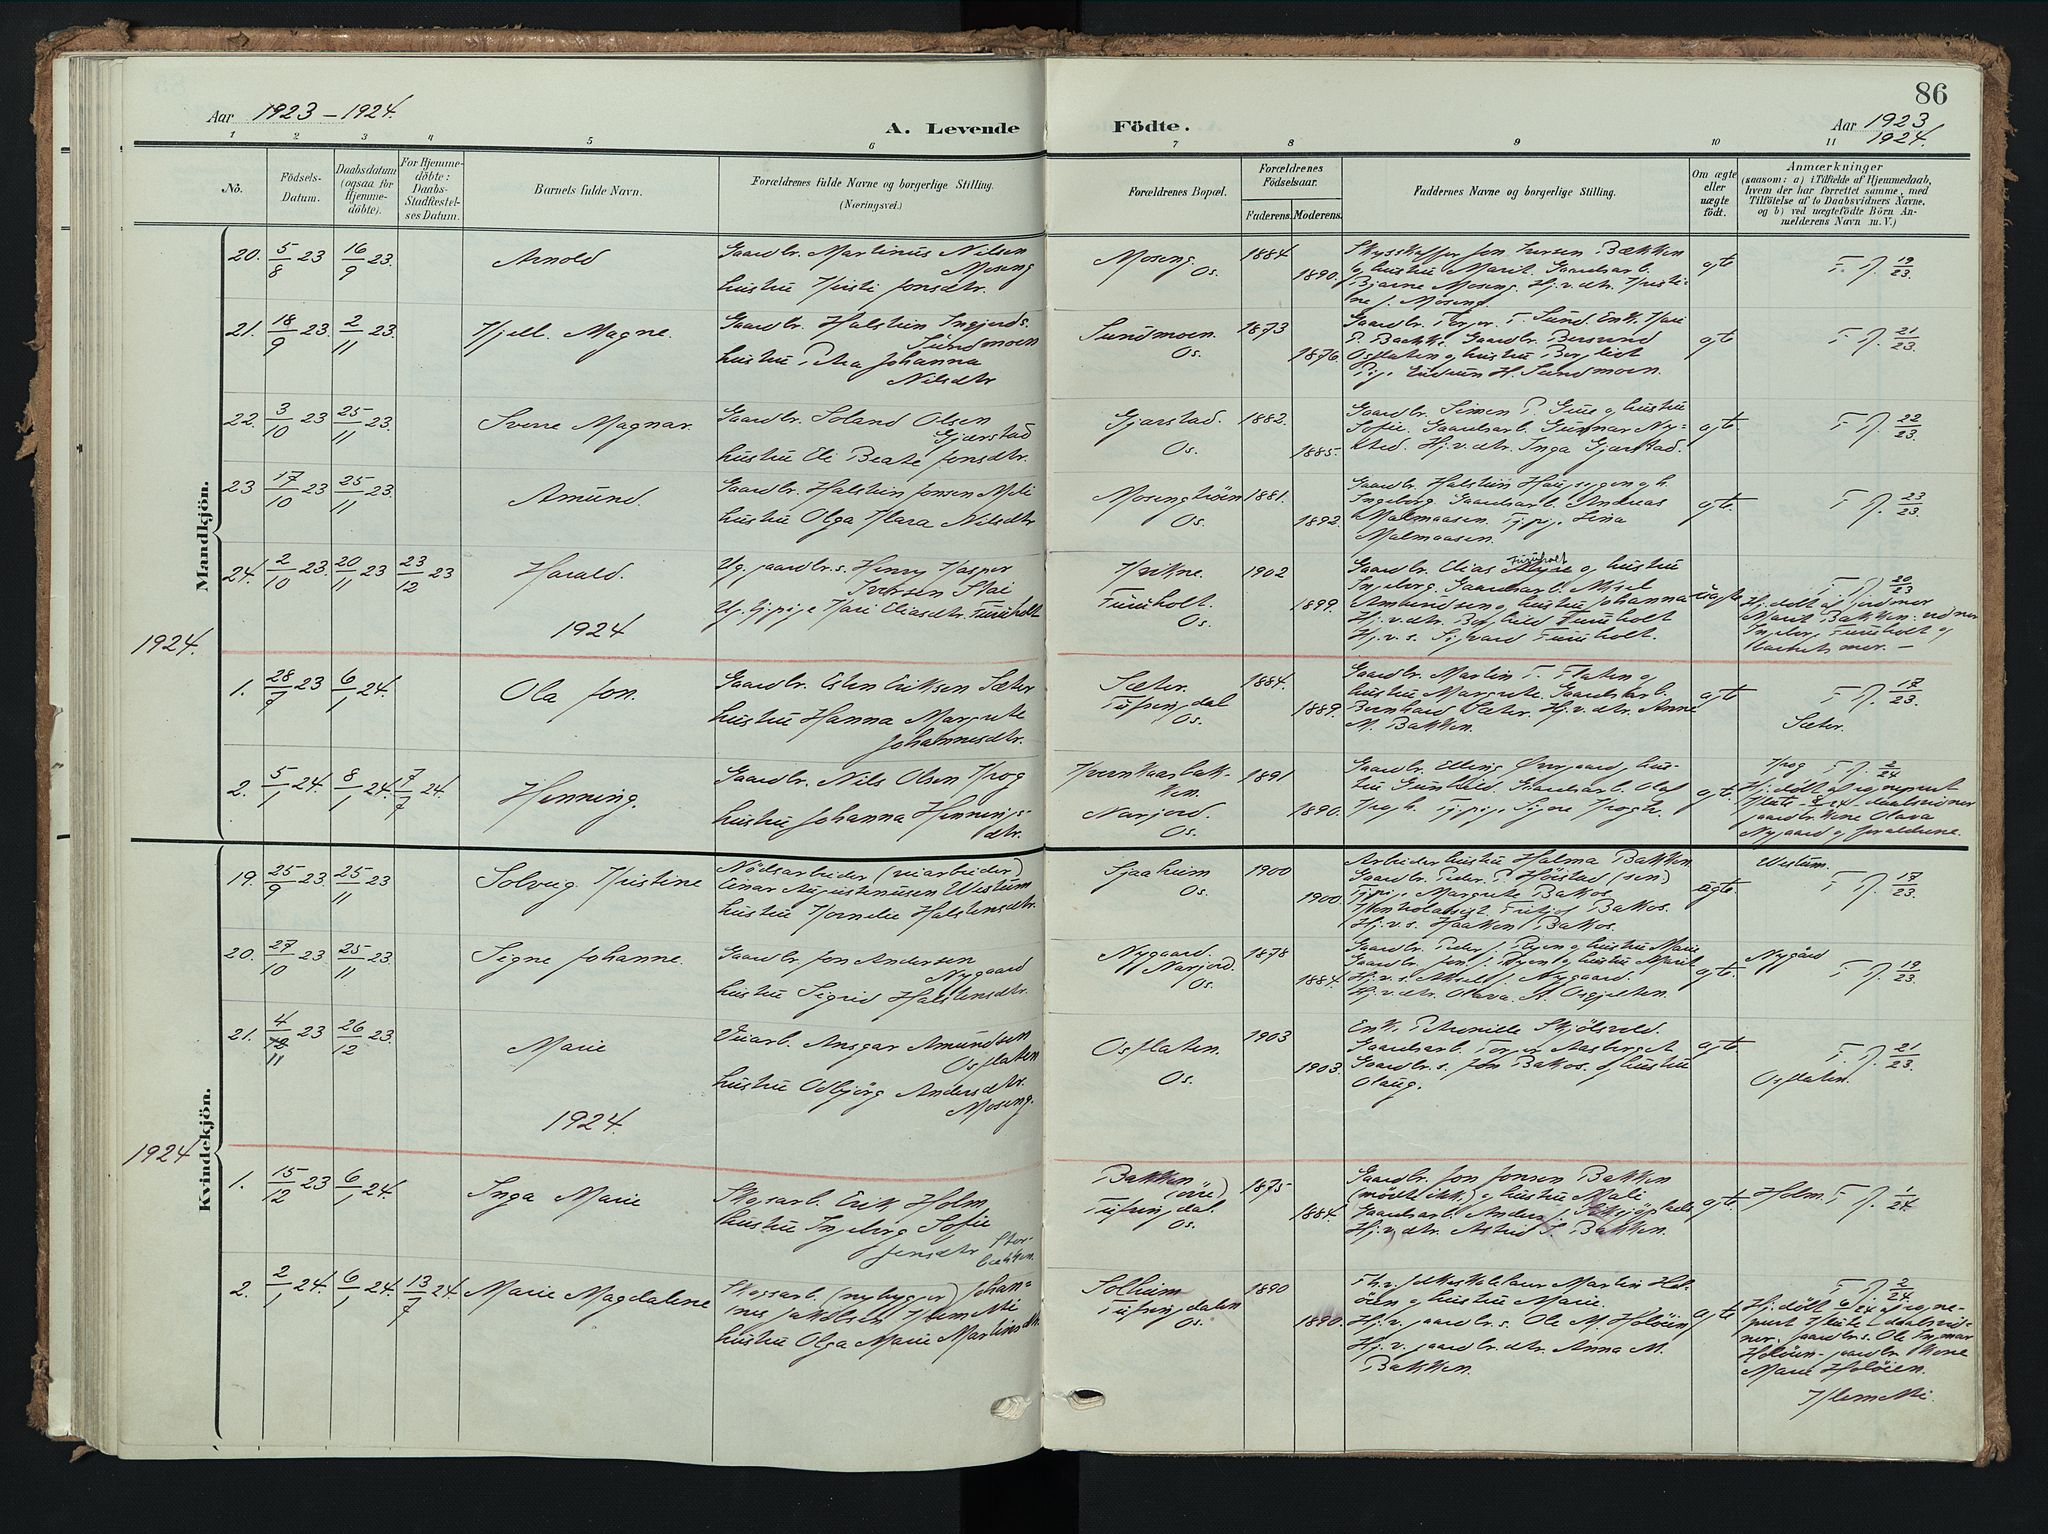 86
Aar 1923-1924.
A. Levende
Födte.
Aar 1923
1924.
1 2 3 4 5 6 7 8 9 10 11
No.
Födsels-
Datum.
Daabsdatum
(ogsaa for
Hjemme-
döbte).
For Hjemme-
döbte:
Daabs-
Stadfæstel-
ses Datum.
Barnets fulde Navn.
Forældrenes fulde Navne og borgerlige Stilling.
(Næringsvei.)
Forældrenes Bopæl.
Forældrenes
Födselsaar.
Faderens. Moderens.
Faddernes Navne og borgerlige Stilling.
Om ægte
eller
uægte
födt.
Anmærkninger
(saasom: a) i Tilfælde af Hjemmedaab,
hvem der har forrettet samme, med
Tilföielse af to Daabsvidners Navne,
og b) ved uægtefödte Börn An-
melderens Navn m. V.)
Mandkjön.
20. 5/8 23 16/9 23. Arnold
Gaardbr. Martinus Nilsen
Moseng
hustru Kristi Jonsdtr.
Moseng
Os.
1884
1890.
Skysskaffer Jon Iversen Bækken
og hustru Marit. Gaardsarb.
Bjarne Moseng. Hj.v.dtr. Kristi-
ne J. Moseng.
egte
F. J. 19/23.
21. 18/9 23. 2/11 23. Kjell Magne.
Gaardbr. Halstein Ingjerds.
Sundmoen
hustru Petra Johanna
Nilsdtr
Sundmoen.
Os.
1873
1876.
Gaardbr. Torger T. Sund. Enk. Kari
P. Bakk. Gaardbr. Bersvend
Osflaten og hustru Bergliot
Pige Gudrun H. Sundmoen.
egte
F J. 21/23.
22. 3/10 23 25/11 23. Sverre Magnar.
Gaardbr. Soland Olsen
Gjerstad
hustru Eli Beate Jonsdtr.
Gjerstad.
Os.
1882.
1885.
Gaardbr. Simen P. og hustru
Sofie. Gaardsarb. Gunnar Ny-
Hj.v.dtr. Inga Gjerstad.
egte.
F J. 22/23.
23 17/10 23 25/11 23. Amund.
Gaardbr. Halstein Jonsen Meli
hustru Olga Klara Nilsdtr
Os.
1881.
1892.
Gaardbr. Halstein og h.
Ingeborg. Gaardsarb. Andreas
Malmaasen. Tj.pi. Lina
Malmaasen.
egte.
F J. 23/23.
24. 2/10 23. 20/11 23 23/12 23 Harald.
Ug. gaardbr.s. Henry Kasper
Iversen Stai
Ug. tj.pige Kari Eliasdtr. Furuholt
Kvikne.
Furuholt.
Os.
1902
1899.
Furuholt
Gaardbr. Elias og hustru
Ingeborg. Gaardsarb. Aksel
Amundsen og hustru Johanna
Hj.v.dtr. Borghild Furuholt
Hj.v.s. Sigvard Furuholt.
uægte
F. J. 20/23
Hj.døbt af jordmor
Marit Bakken: vidner
Ingeborg Furuholt og
Barnets mor. —
1924
1924.
1. 28/9 23 6/1 24. Ola Jon.
Gaardbr. Esten Eriksen Sæter
hustru Hanna Margrete
Johannesdtr.
Sæter.
Tufsingdal
Os.
1884.
1889.
Gaardbr. Martin T. Flaten og
hustru Margrete. Gaardsarb.
Bernhard Sæter. Hj.v.dtr. Anne
M. Bakken.
egte
F J. 17/23.
Sæter.
2. 5/1 24. 8/1 24. 7/7 24. Henning.
Gaardbr. Nils Olsen Krog
hustru Johanna Hennings-
dtr.
Kvernhaarbak-
ken.
Narjord.
Os.
1891
1890.
Gaardbr. Elling Øvergaard, hus-
tru Gunhild. Gaardsarb. Olaf
Krogh. Tj.pi. Signe Krogh.
egte.
Krog F. J. 2/24
Hj.døbt af sogneprest
Klæte - 8/1 24 - daabsvidner
gaardbr.kone Olava
Nygaard og foreldrene.
Kvindekjön.
19. 25/9 23. 25/11 23 Solveig Kristine
Nödsarbeider (veiarbeider)
Einar Augustinusen Westum
hustru Kornelie Halstensdtr.
Sjaaheim
Os.
1900
1900.
Arbeider hustru Halma Bakken.
Gaardbr. Peder P. Høistad (sen.)
Tj.pi. Margrete Bakos.
Fritjof Bakos.
Hj.v.s. Haakon Bakos.
ægte.
Westum.
F J. 17/23.
20. 27/10 23 25/11 23. Signe Johanne.
Gaardbr. Jon Andersen
Nygaard
hustru Sigrid Halstensdtr.
Nygaard.
Narjord.
Os.
1878
1884.
Gaardbr. Peder J. Ryen og hustru Marie
Gaardbr. Jon J. Ryen og hustru Marit
Hj.v.s. Aksel J. Nygaard.
Hj.v.dtr. Olava A.
egte.
Nygård
F J. 19/23.
21. 4/11 23 26/12 23. Marie
Veiarb. Ansgar Amundsen
Osflaten
hustru Odbjørg Andersdtr.
Moseng.
Osflaten.
Os.
1903
1903.
Enk. Petronille Skjölsvold.
Gaardsarb. Torger Aasberget
Gaardbr.s. Jon Bakos. og hustru
Olaug.
egte
F. J. 21/23
Osflaten.
1924.
1924
1. 15/12 23 6/1 24. Inga Marie
Skogsarb. Erik Holm
hustru Ingeborg Sofie
Jensdtr Stor-
bækken.
Bakken
(øvre)
Tufsingdal.
Os.
1875
1884.
Gaardbr. Jon Jonsen Bakken
(mødte ikke) og hustru Mali
Gaardsarb. Anders J.
Hj.v.dtr. Astrid S. Bakken.
egte.
Holm. F J. 1/24.
2. 2/1 24. 6/1 24. 13/7 24. Marie Magdalene
Skogsarb. (nybygger) Johan-
nes Jakobsen Klemetti
hustru Olga Marie Martinsdtr.
Solheim
Tufsingdalen
Os.
1890
1890.
Fhv. folkeskolelærer Martin Hol-
öien og hustru Marie.
Hj.v. gaardbr.s. Ole M. Holöien
Hj.v. gaardbr.dtr. Anna M.
Bakken.
egte
F. J. 2/24
Hj.døbt 6/1 24 af sogne-
prest Klæte - daabsvid-
ner: gaardbr.s. Ole Ingmar
Holöien - gaardbr. kone
Marie Holöien.
Klemetti